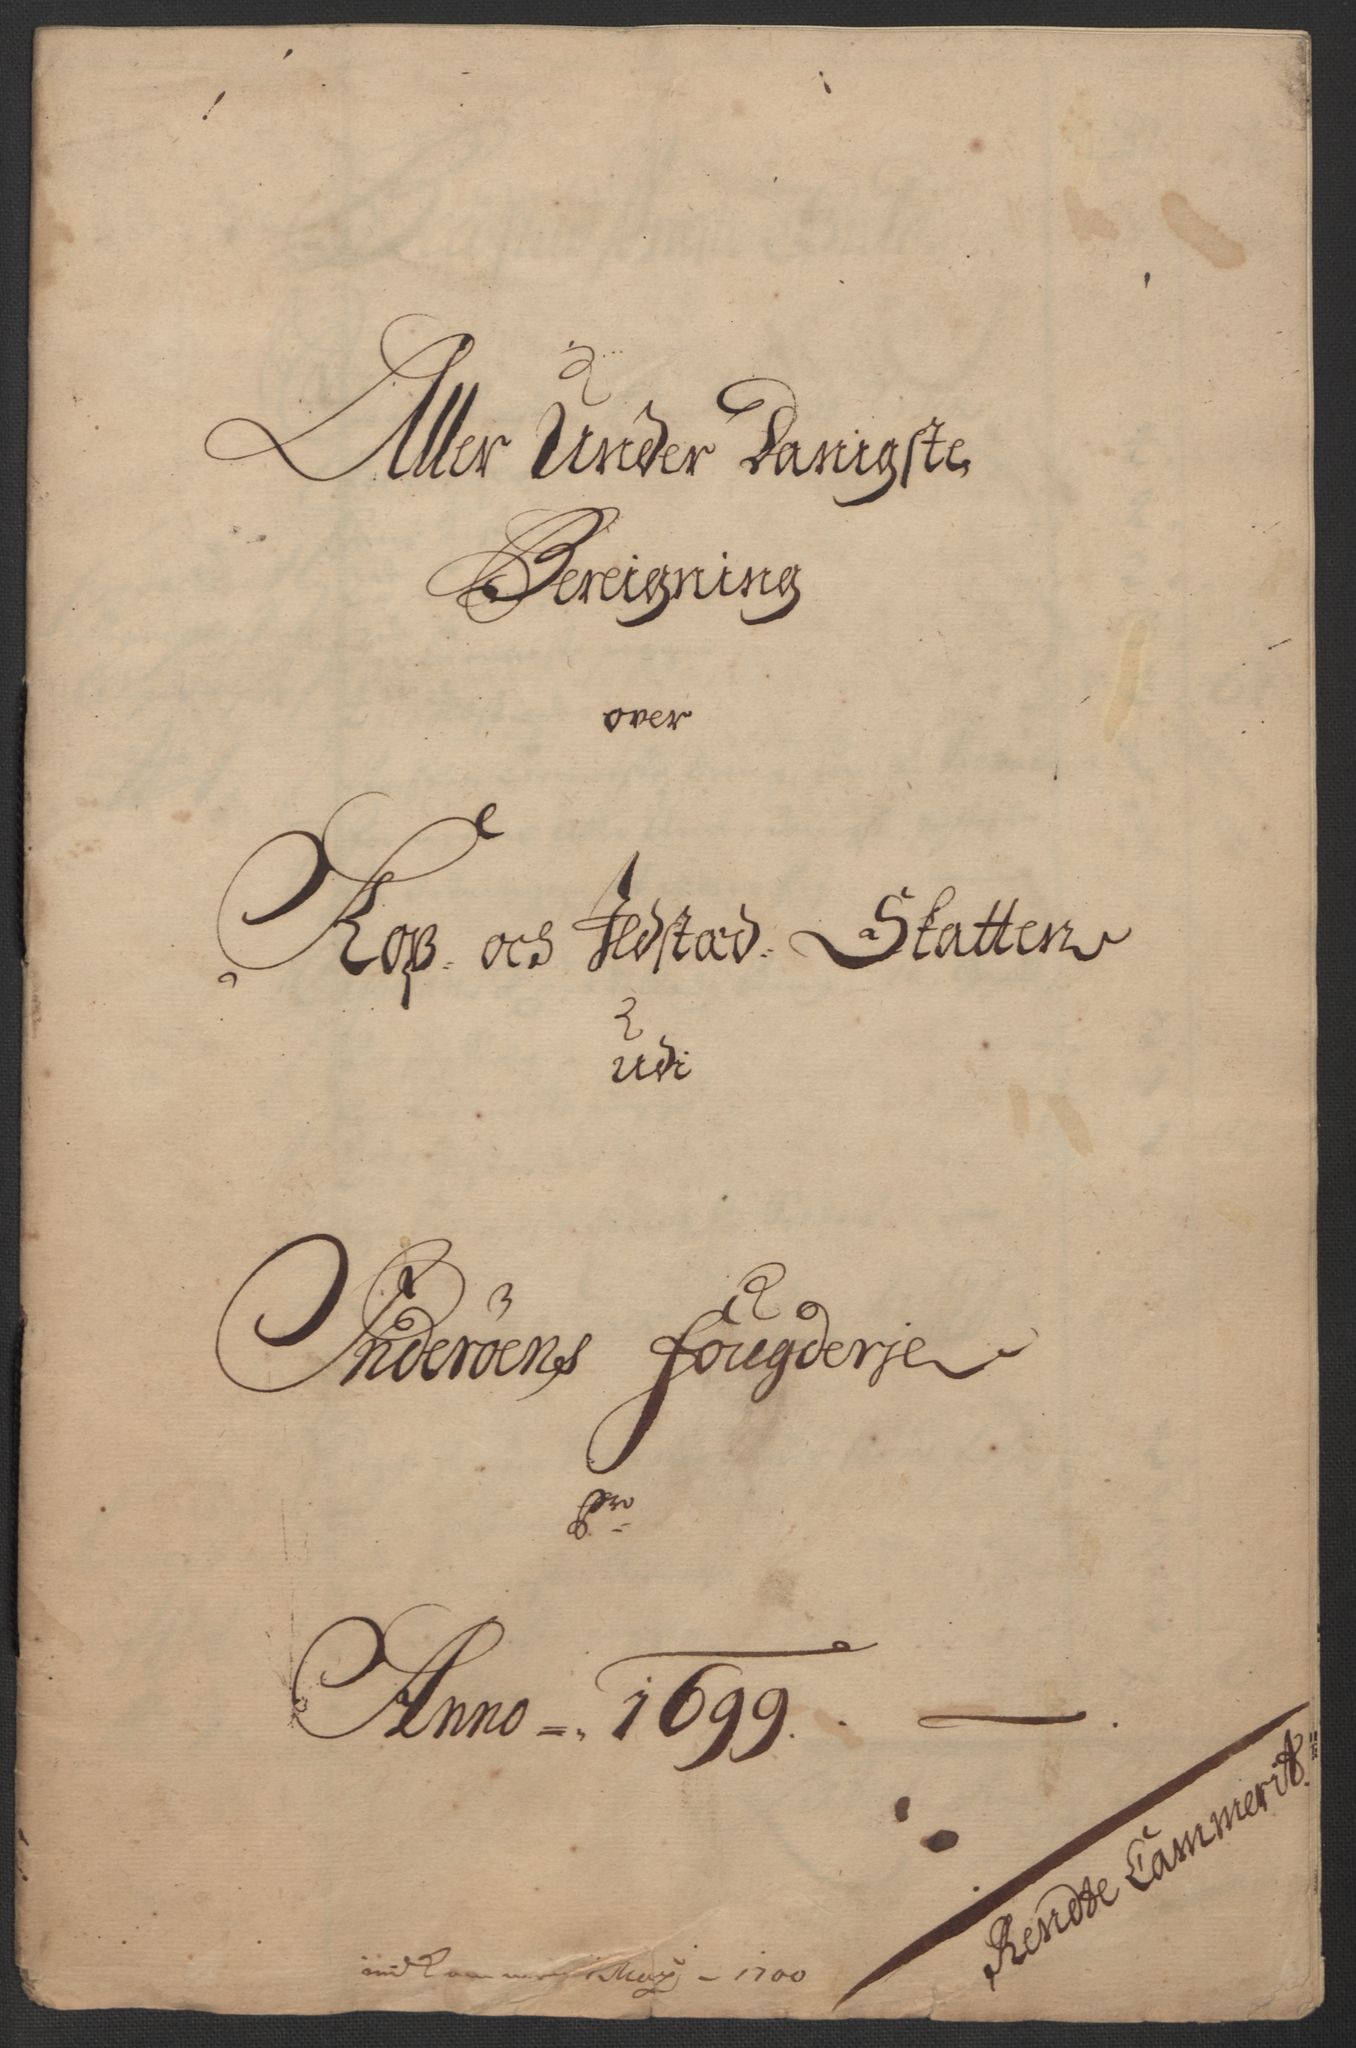 Aller Under Danigste
Bereigning
over
Kop- och Ildstæd- Skatten
Udi
Inderöens fougderje
pro
Anno 1699.
Rendte Cammerit
ind Kommen i Maij 1700